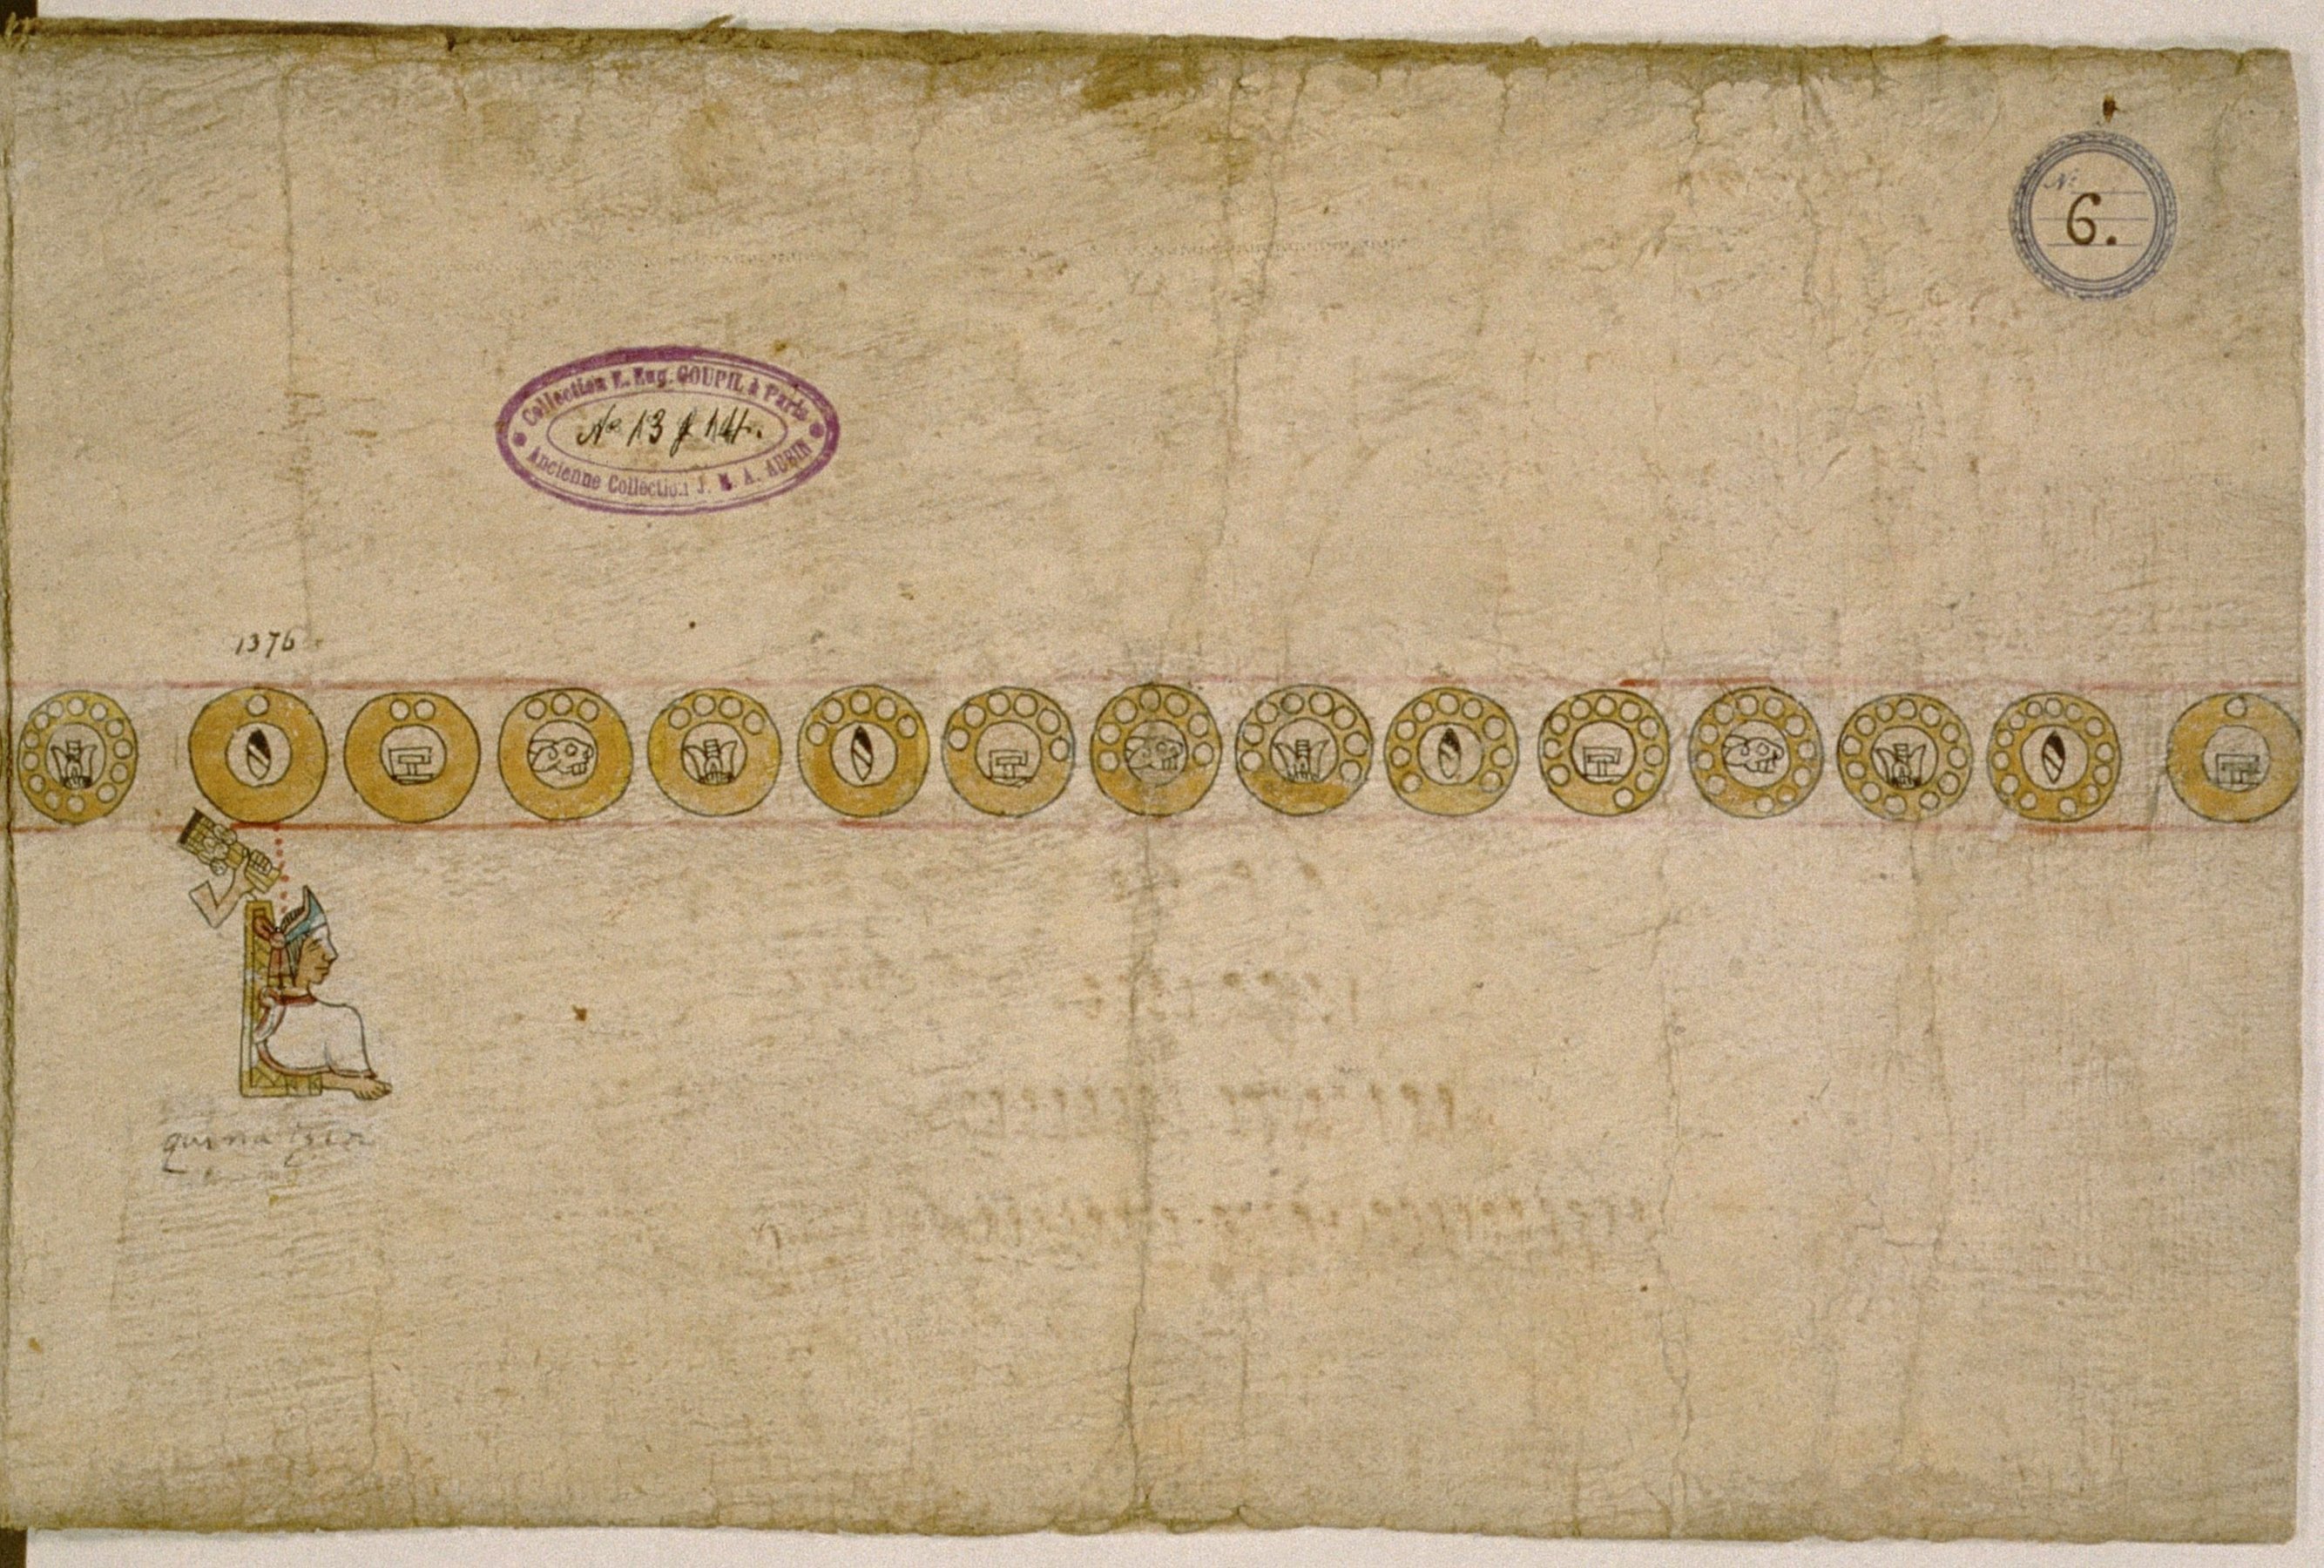 Nº
6.
Collection E. Eug. GOUPIL à Paris
Nº 13 & 14.
Ancienne Collection J. M. A. AUBIN
1376
quinatzin